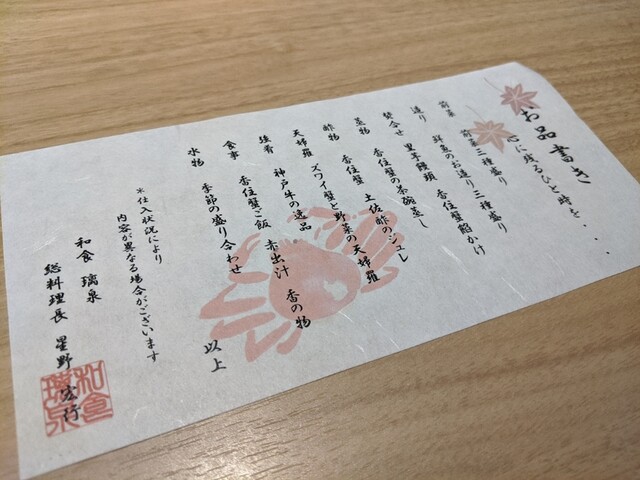 お品書き
心に残るひと時を・・・
前菜 前菜三種盛り
造り 鮮魚のお造り三種盛り
焚合せ 里芋饅頭 香住蟹餡かけ
蒸物 香住蟹の茶碗蒸し
酢物 香住蟹 土佐酢のジュレ
天婦羅 ズワイ蟹と野菜の天婦羅
強肴 神戸牛の逸品
食事 香住蟹ご飯 赤出汁 香の物
水物 季節の盛り合わせ
以上
※仕入状況により
内容が異なる場合がございます
和食 璃泉
総料理長 星野 宏行
和食
璃泉